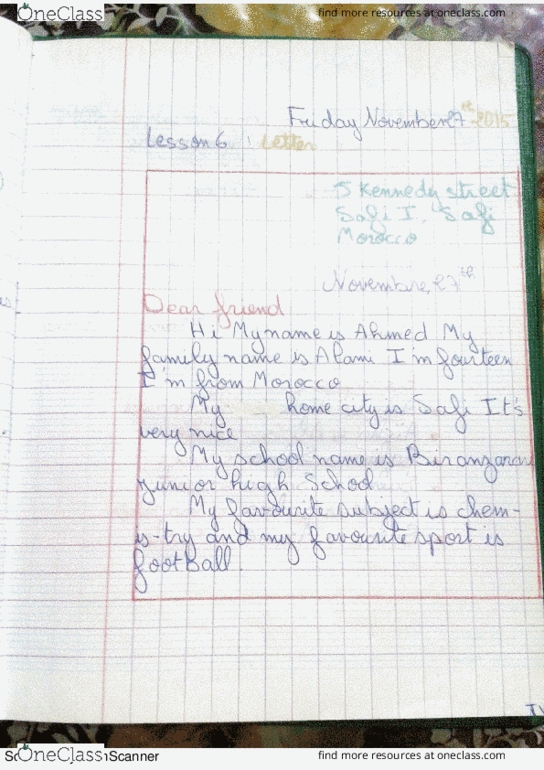 OneClass
find more resources at oneclass.com
Friday November 27th 2015
Lesson 6 : Letter
5 Kennedy street
Safi I, Safi
Morocco
Novembre, 27th
Dear friend
Hi My name is Ahmed My
family name is Alami I'm fourteen
I'm from Morocco
My home city is Safi It's
very nice
My school name is Biranzaran
junior high School
My favourite subject is chem-
is-try and my favourite sport is
football.
OneClass
Scanner
find more resources at oneclass.com